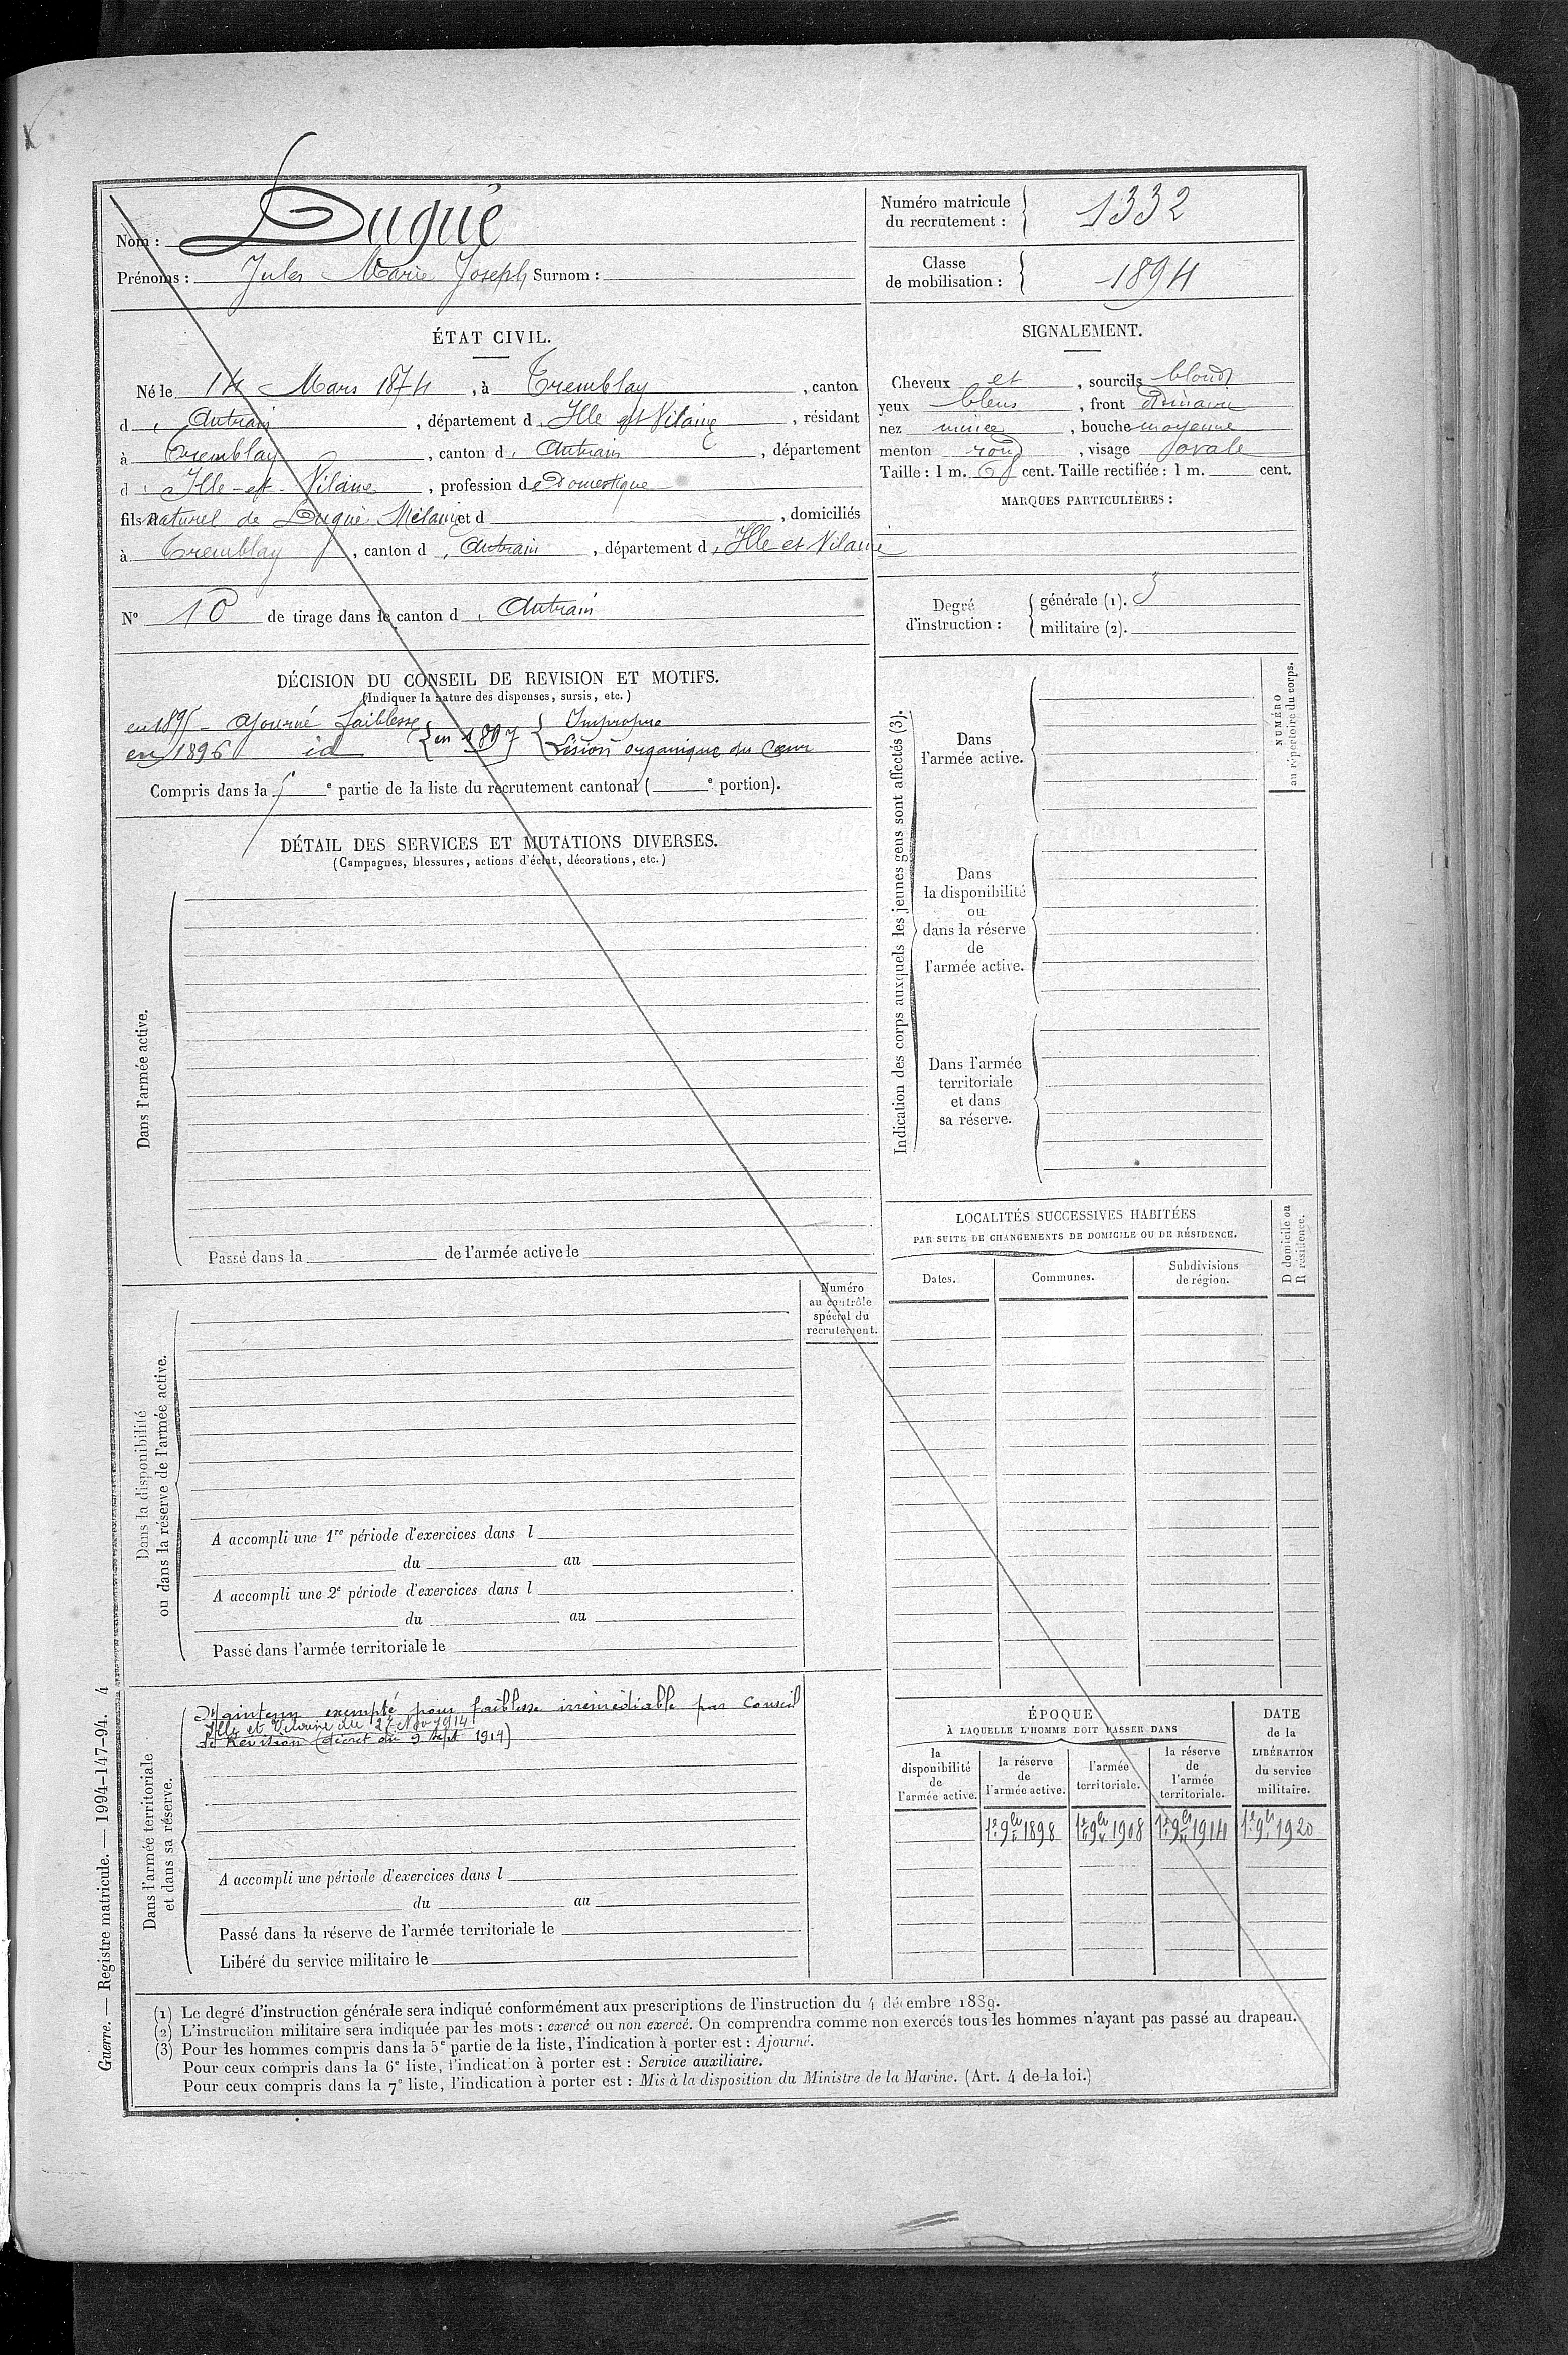 Nom : Dugué
Prénoms : Jules Marie Joseph Surnom :
Numéro matricule
du recrutement : 1332
Classe
de mobilisation : 1894
ÉTAT CIVIL.
Né le 14 Mars 1874, à Tremblay, canton
d' Antrain, département d' Ille et Vilaine, résidant
à Tremblay, canton d' Antrain, département
d' Ille-et-Vilaine, profession de Domestique
fils naturel de Dugué Mélanie et d , domiciliés
à Tremblay, canton d' Antrain, département d' Ille et Vilaine
N° 10 de tirage dans le canton d' Antrain
SIGNALEMENT.
Cheveux et , sourcils blonds
yeux bleus , front ordinaire
nez mince , bouche moyenne
menton rond , visage ovale
Taille : 1 m. 61 cent. Taille rectifiée : 1 m. cent.
MARQUES PARTICULIÈRES :
Degré
d'instruction :
générale (1). 3
militaire (2).
DÉCISION DU CONSEIL DE REVISION ET MOTIFS.
(Indiquer la nature des dispenses, sursis, etc.)
en 1895 - ajourné faiblesse
en 1896 id
en 1897
Impropre
Lésion organique du Cœur
Compris dans la e partie de la liste du recrutement cantonal ( e portion).
DÉTAIL DES SERVICES ET MUTATIONS DIVERSES.
(Campagnes, blessures, actions d'éclat, décorations, etc.)
Dans l'armée active.
Passé dans la de l'armée active le
Indication des corps auxquels les jeunes gens sont affectés (3).
NUMÉRO
au répertoire du corps.
Dans
l'armée active.
Dans
la disponibilité
ou
dans la réserve
de
l'armée active.
Dans l'armée
territoriale
et dans
sa réserve.
LOCALITÉS SUCCESSIVES HABITÉES
PAR SUITE DE CHANGEMENTS DE DOMICILE OU DE RÉSIDENCE.
Dates.
Communes.
Subdivisions
de région.
D domicile ou
R résidence.
Numéro
au contrôle
spécial du
recrutement.
Dans la disponibilité
ou dans la réserve de l'armée active.
A accompli une 1re période d'exercices dans l
du au
A accompli une 2e période d'exercices dans l
du au
Passé dans l'armée territoriale le
Dans l'armée territoriale
et dans sa réserve.
Maintenu exempté pour faiblesse irrémédiable par Conseil
Ille et Vilaine du 27 Nov 1914
de Révision (décret du 9 sept 1914)
A accompli une période d'exercices dans l
du au
Passé dans la réserve de l'armée territoriale le
Libéré du service militaire le
ÉPOQUE
À LAQUELLE L'HOMME DOIT PASSER DANS
la
disponibilité
de
l'armée active.
la réserve
de
l'armée active.
l'armée
territoriale.
la réserve
de
l'armée
territoriale.
DATE
de la
LIBÉRATION
du service
militaire.
1er 9bre 1898
1er 9bre 1908
1er 9bre 1914
1er 9bre 1920
(1) Le degré d'instruction générale sera indiqué conformément aux prescriptions de l'instruction du 4 décembre 1889.
(2) L'instruction militaire sera indiquée par les mots : exercé ou non exercé. On comprendra comme non exercés tous les hommes n'ayant pas passé au drapeau.
(3) Pour les hommes compris dans la 5e partie de la liste, l'indication à porter est : Ajourné.
Pour ceux compris dans la 6e liste, l'indication à porter est : Service auxiliaire.
Pour ceux compris dans la 7e liste, l'indication à porter est : Mis à la disposition du Ministre de la Marine. (Art. 4 de la loi.)
Guerre. — Registre matricule. — 1994-147-94. 4